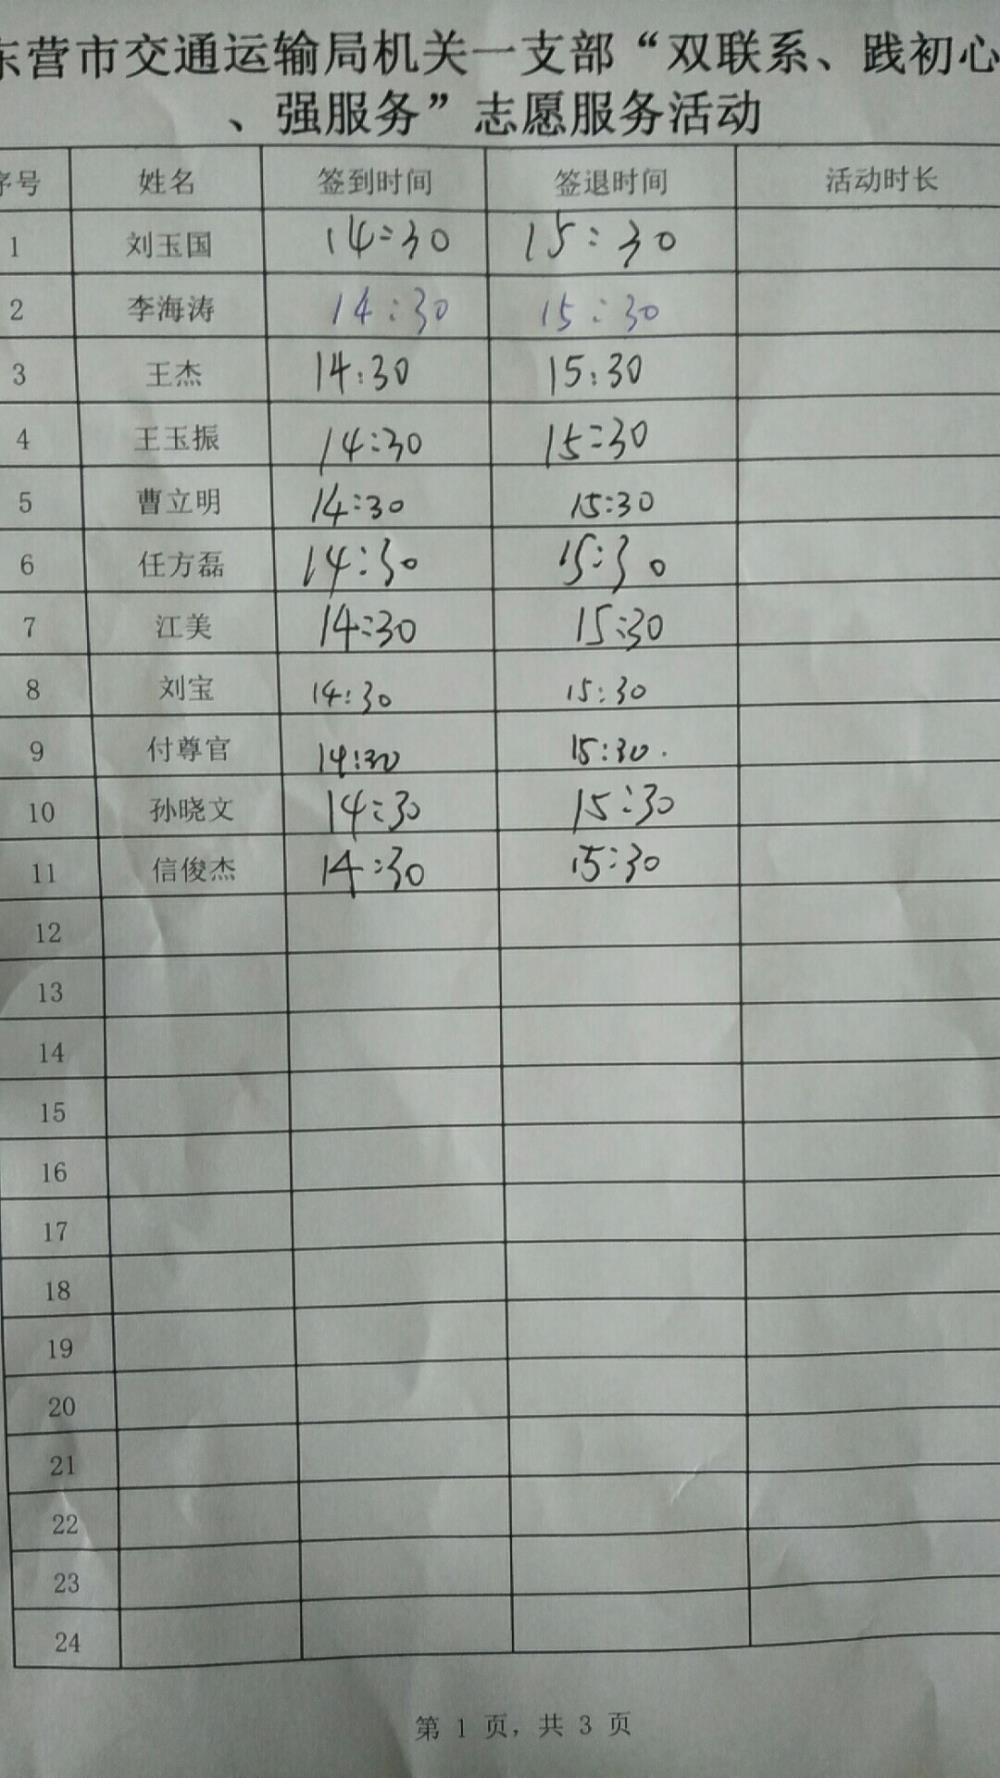 东营市交通运输局机关一支部“双联系、践初心
、强服务”志愿服务活动
序号 姓名 签到时间 签退时间 活动时长
1 刘玉国 14:30 15:30
2 李海涛 14:30 15:30
3 王杰 14:30 15:30
4 王玉振 14:30 15:30
5 曹立明 14:30 15:30
6 任方磊 14:30 15:30
7 江美 14:30 15:30
8 刘宝 14:30 15:30
9 付尊官 14:30 15:30.
10 孙晓文 14:30 15:30
11 信俊杰 14:30 15:30
12
13
14
15
16
17
18
19
20
21
22
23
24
第 1 页，共 3 页